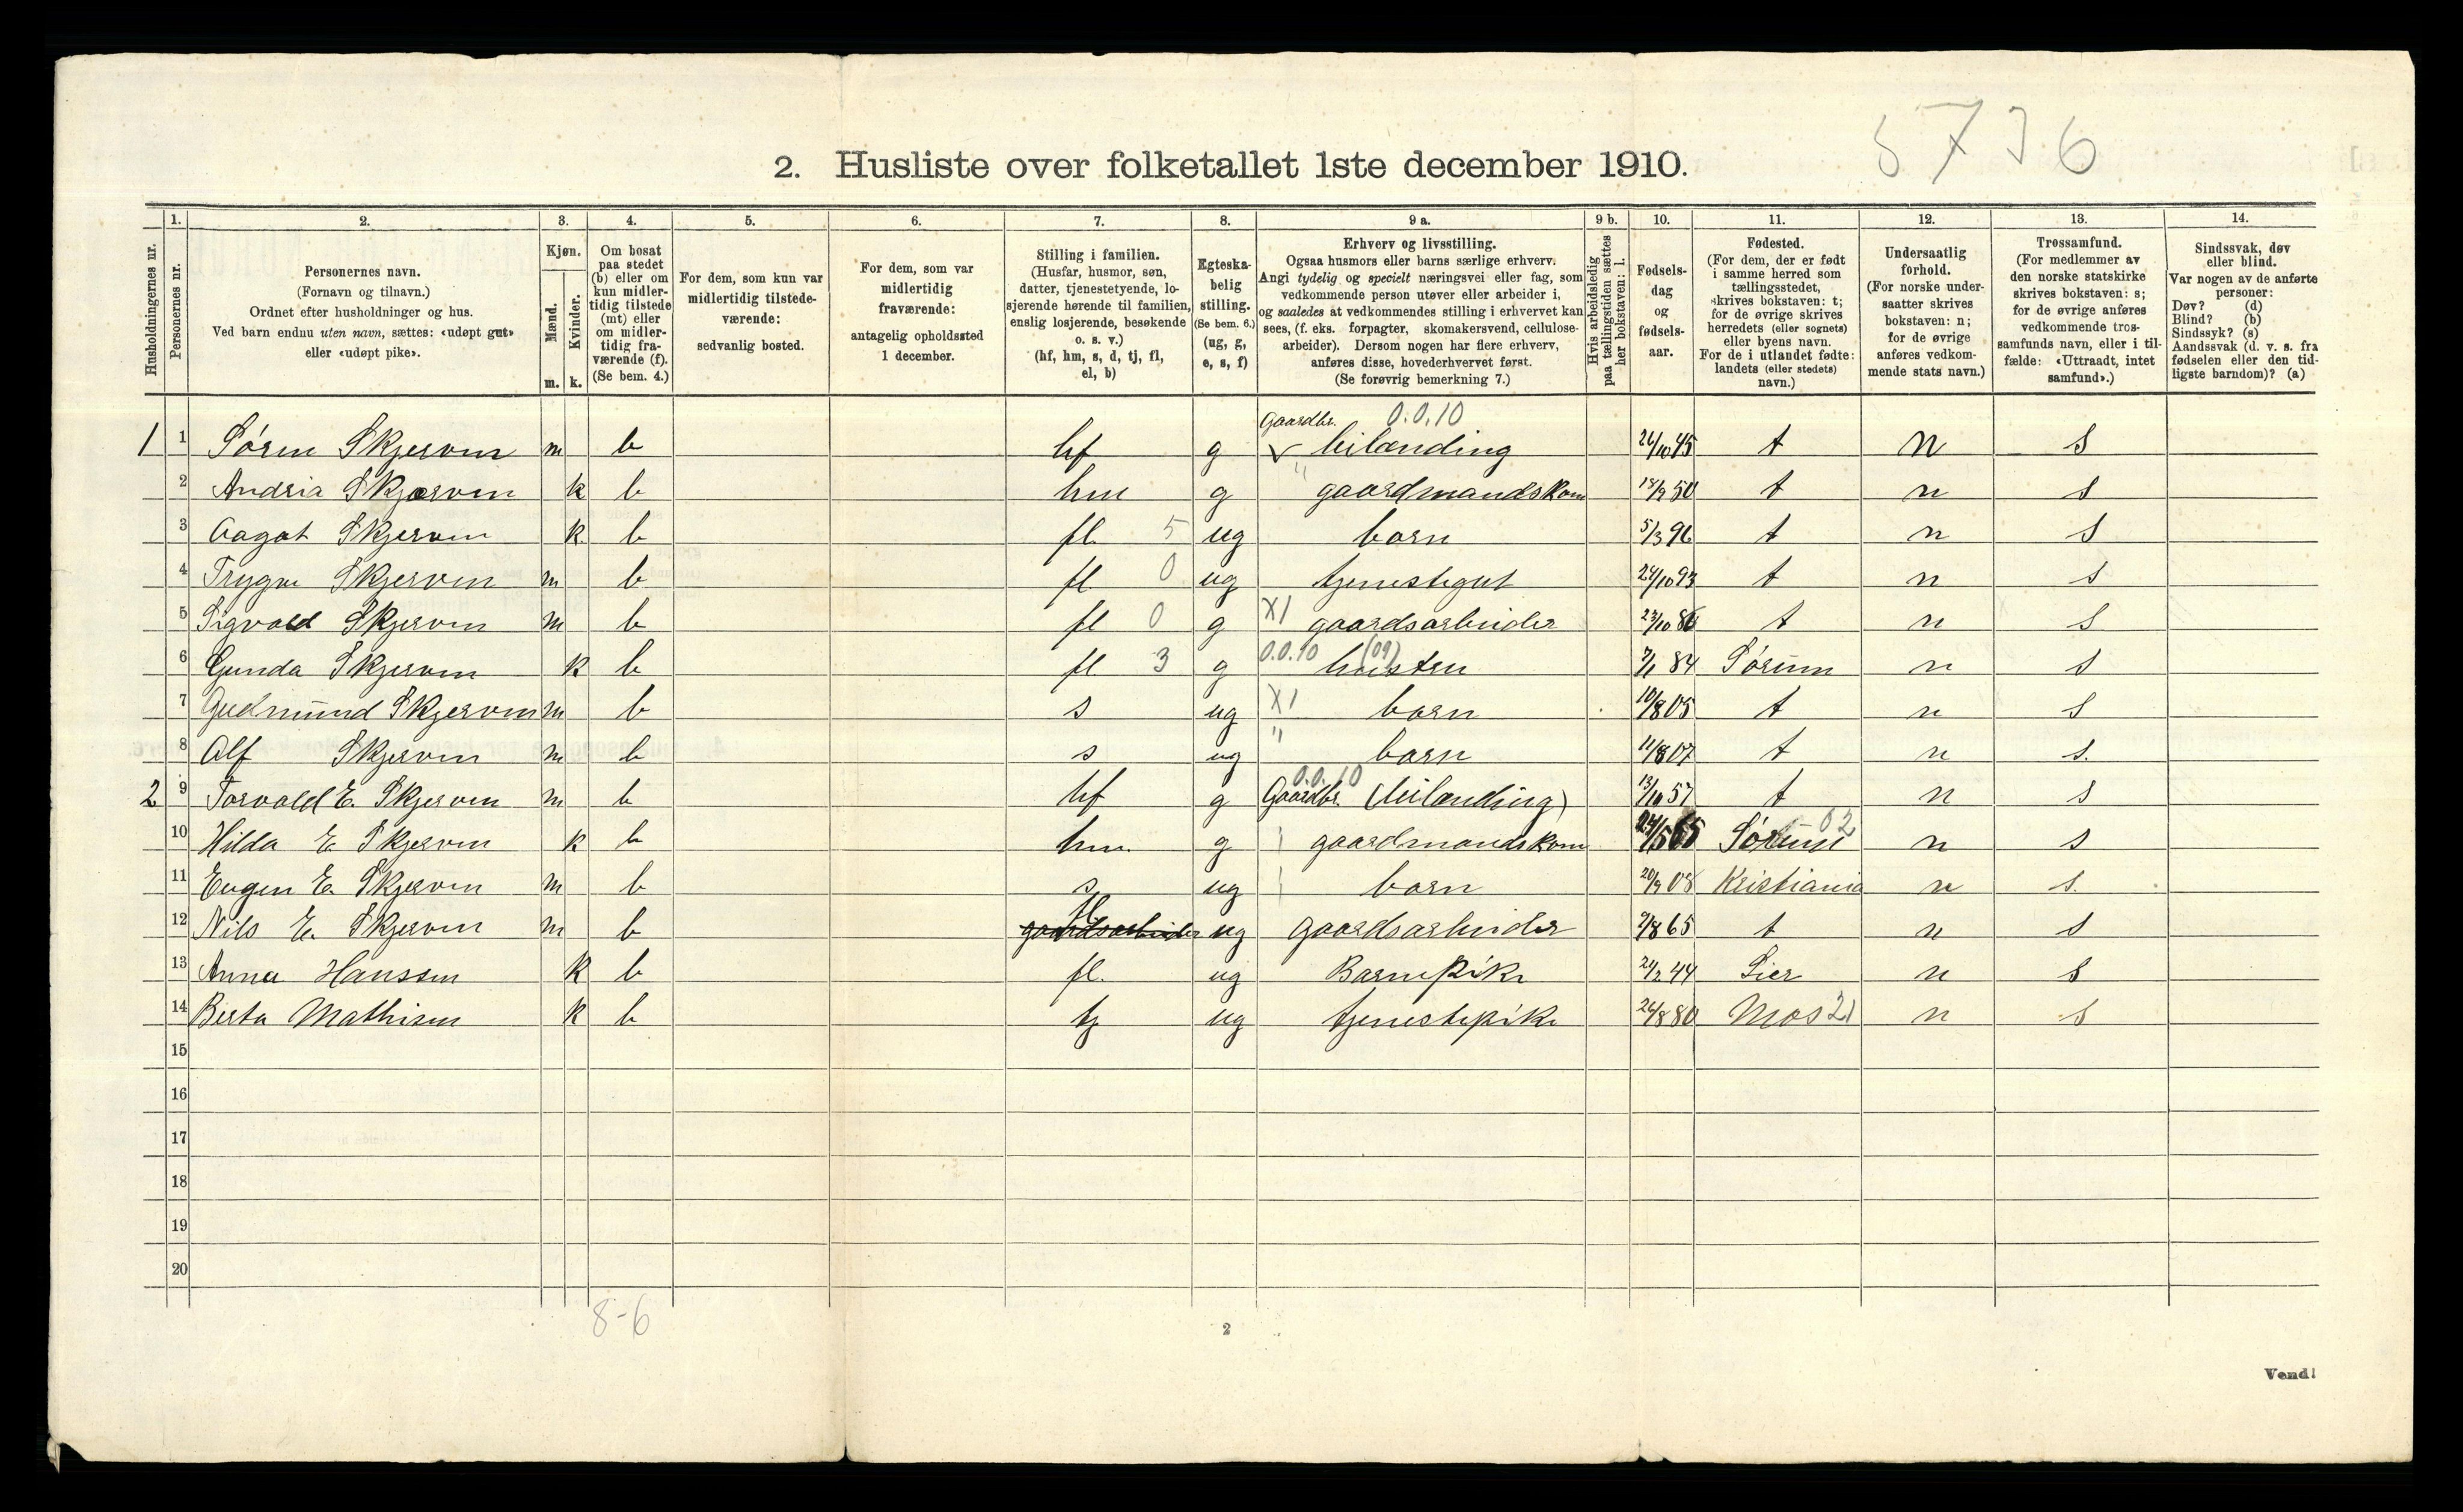 5736
2. Husliste over folketallet 1ste december 1910.
Husholdningernes nr.
1. Personernes nr.
2. Personernes navn.
(Fornavn og tilnavn.)
Ordnet efter husholdninger og hus.
Ved barn endnu uten navn, sættes: «udøpt gut»
eller «udøpt pike».
3. Kjøn.
Mænd. m.
Kvinder. k.
4. Om bosat
paa stedet
(b) eller om
kun midler-
tidig tilstede
(mt) eller
om midler-
tidig fra-
værende (f).
(Se bem. 4.)
5. For dem, som kun var
midlertidig tilstede-
værende:
sedvanlig bosted.
6. For dem, som var
midlertidig
fraværende:
antagelig opholdssted
1 december.
7. Stilling i familien.
(Husfar, husmor, søn,
datter, tjenestetyende, lo-
sjerende hørende til familien,
enslig losjerende, besøkende
o. s. v.)
(hf, hm, s, d, tj, fl,
el, b)
8. Egteska-
belig
stilling.
(Se bem. 6.)
(ug, g,
e, s, f)
9 a. Erhverv og livsstilling.
Ogsaa husmors eller barns særlige erhverv.
Angi tydelig og specielt næringsvei eller fag, som
vedkommende person utøver eller arbeider i,
og saaledes at vedkommendes stilling i erhvervet kan
sees, (f. eks. forpagter, skomakersvend, cellulose-
arbeider). Dersom nogen har flere erhverv,
anføres disse, hovederhvervet først.
(Se forøvrig bemerkning 7.)
9 b. Hvis arbeidsledig
paa tællingstiden sættes
her bokstaven: l.
10. Fødsels-
dag
og
fødsels-
aar.
11. Fødested.
(For dem, der er født
i samme herred som
tællingsstedet,
skrives bokstaven: t;
for de øvrige skrives
herredets (eller sognets)
eller byens navn.
For de i utlandet fødte:
landets (eller stedets)
navn.)
12. Undersaatlig
forhold.
(For norske under-
saatter skrives
bokstaven: n;
for de øvrige
anføres vedkom-
mende stats navn.)
13. Trossamfund.
(For medlemmer av
den norske statskirke
skrives bokstaven: s;
for de øvrige anføres
vedkommende tros-
samfunds navn, eller i til-
fælde: «Uttraadt, intet
samfund».)
14. Sindssvak, døv
eller blind.
Var nogen av de anførte
personer:
Døv? (d)
Blind? (b)
Sindssyk? (s)
Aandssvak (d. v. s. fra
fødselen eller den tid-
ligste barndom)? (a)
Gaardbr. 0.0.10
1 1 Søren Skjerven m b hf g leilænding 26/10 45 t n s
2 Andria Skjærven k b hm g " gaardmandskone 18/9 50 t n s
3 Aagot Skjerven k b fl 5 ug barn 5/3 96 t n s
4 Trygve Skjerven m b fl 0 ug tjenestegut 24/10 93 t n s
5 Sigvald Skjerven m b fl 0 g X1 gaardsarbeider 23/10 86 t n s
0.0.10 (09)
6 Gunda Skjerven k b fl 3 g hustru 7/1 84 Sørum n s
7 Gudmund Skjerven m s b ug X1 barn 10/8 05 t n s
8 Alf Skjerven m b s ug " barn 11/8 07 t n s.
0.0.10
2 9 Torvald E. Skjerven m b hf g Gaardbr. (leilænding) 13/10 57 t n s
10 Hilda E Skjerven k b hm. g gaardmandskone 24/5 65 Sørum 02 n s
11 Eugen E. Skjerven m b s ug barn 20/9 08 Kristiania n s.
12 Nils E. Skjerven m b gaardsarbeider fl ug gaardsarbeider 9/8 65 t n s
13 Anna Hanssen k b fl. ug Barnepike 21/2 44 Lier n s
14 Berta Mathisen k b tj ug tjenestepike 26/8 80 Mos 21 n s
15
16
17
18
19
20
8-6
2
Vend!